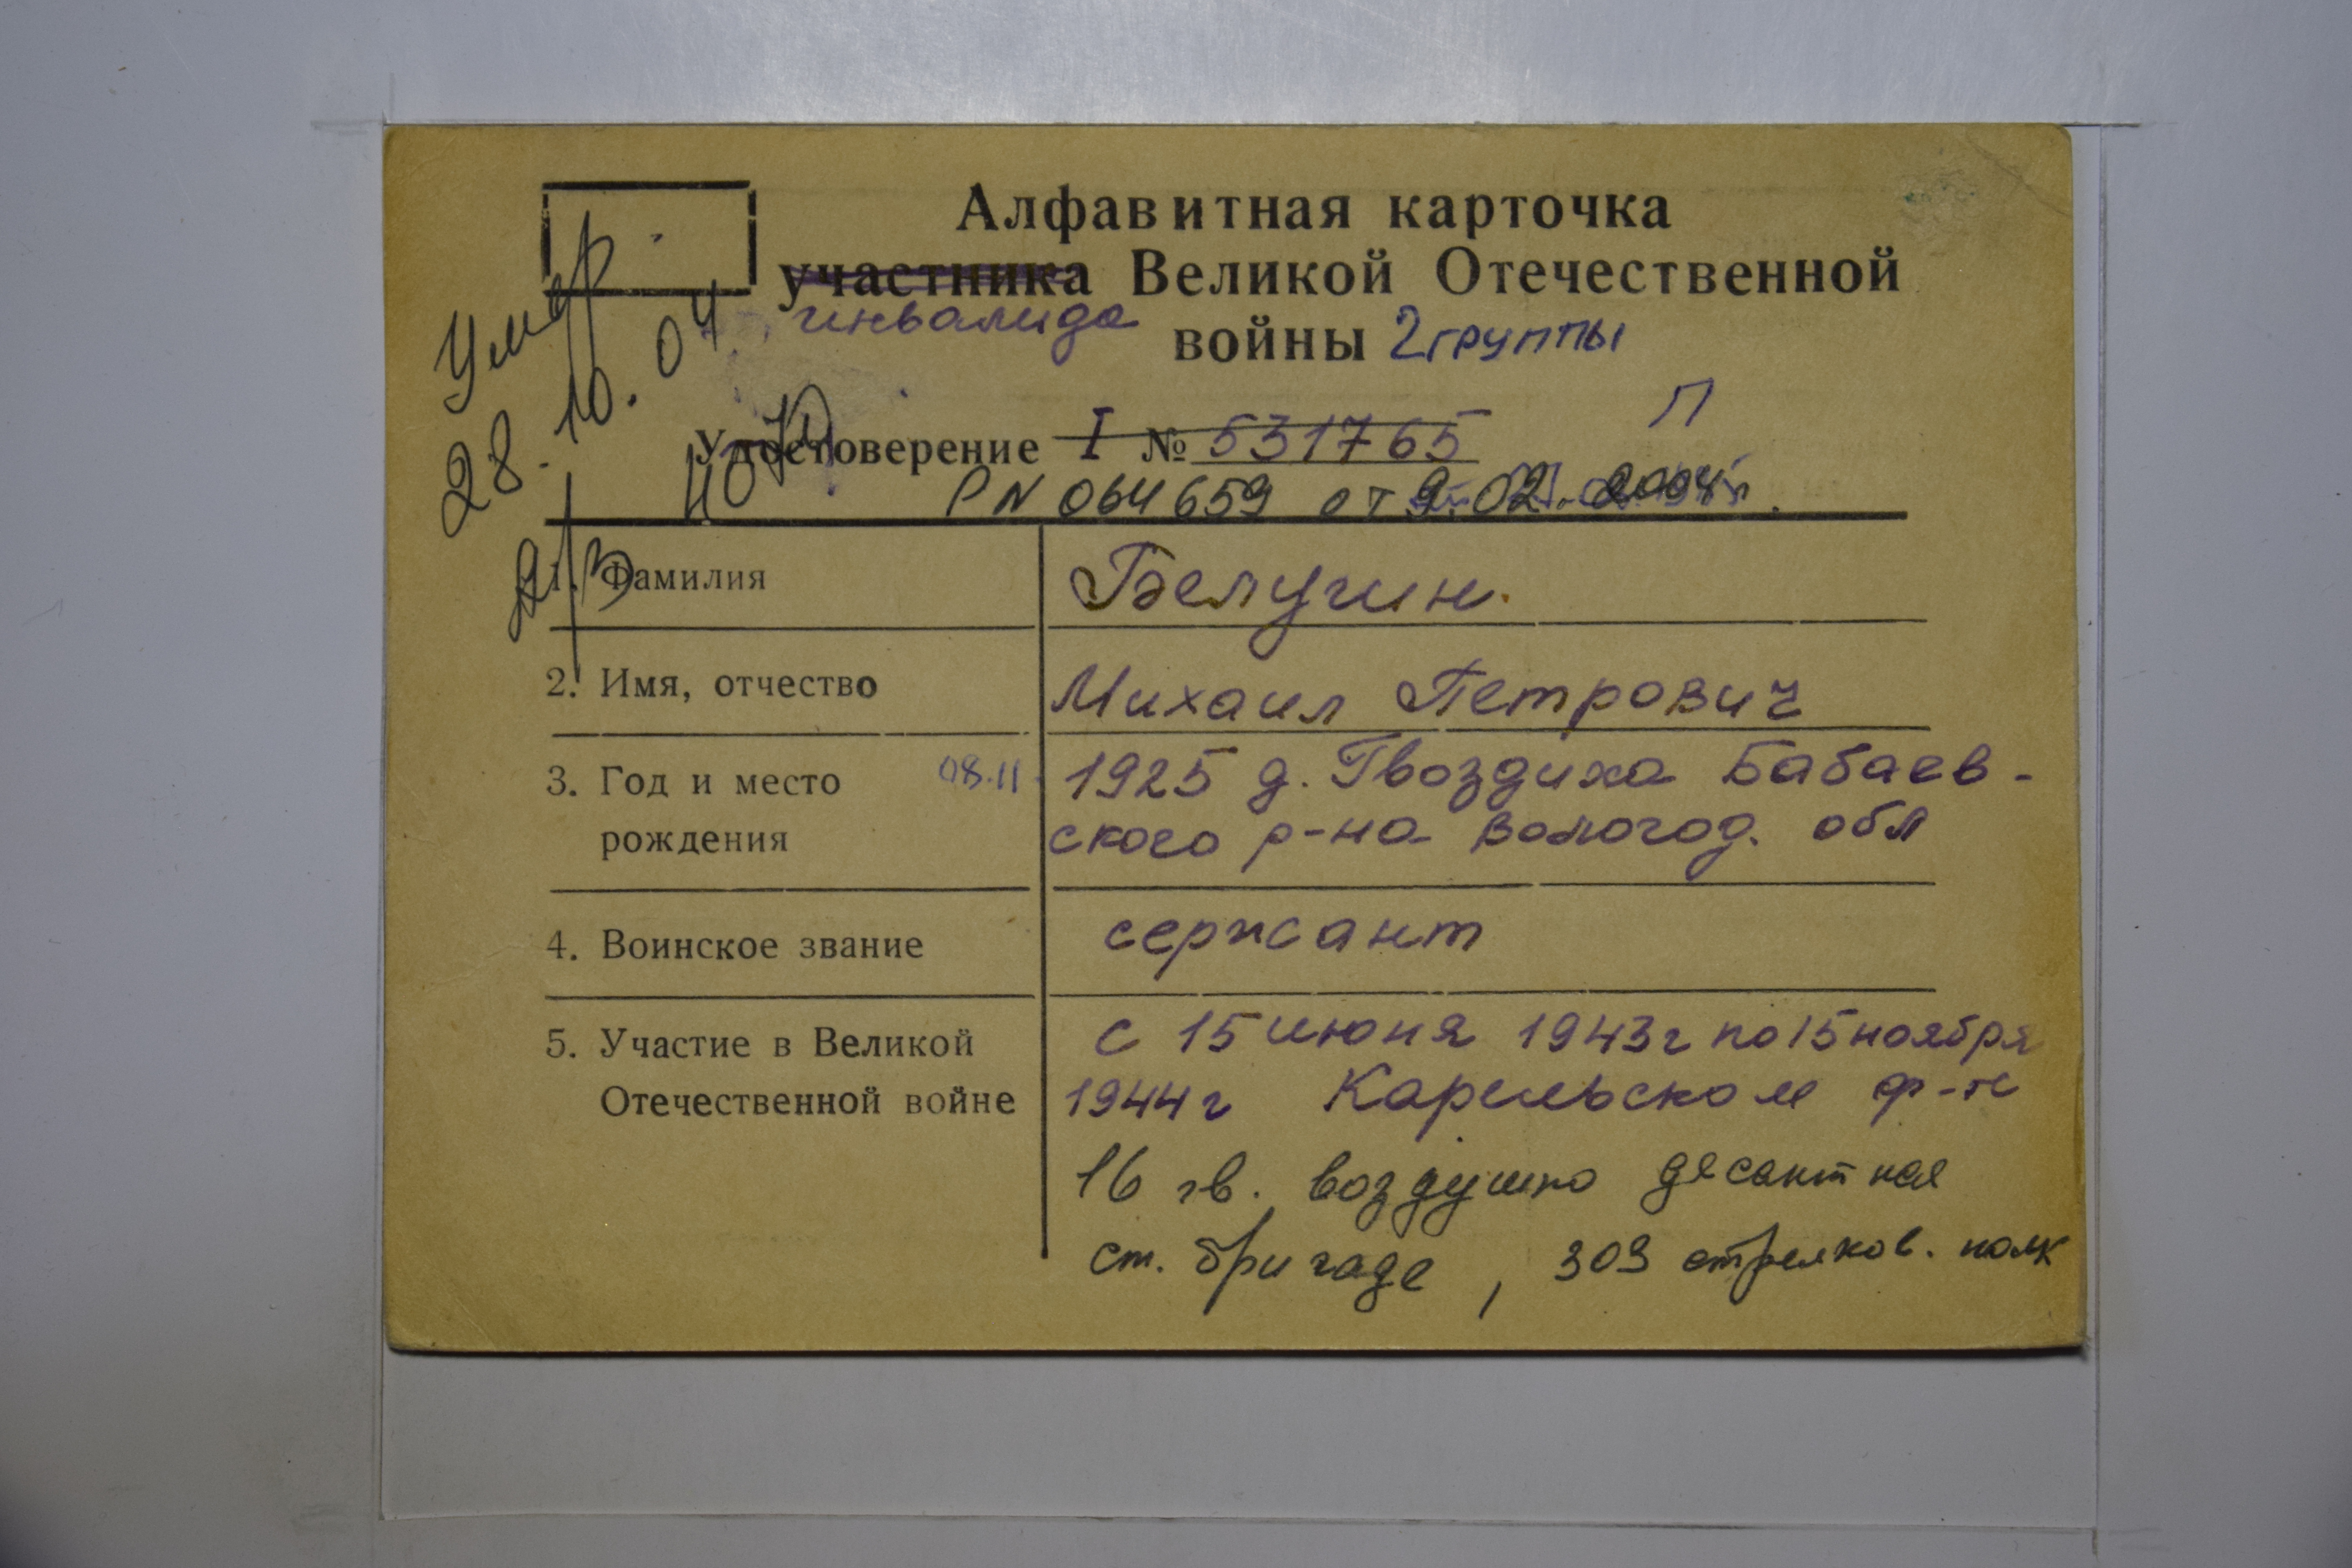 Алфавитная карточка
участника Великой Отечественной
инвалида
войны 2 группы
Умер
28.10.04
П
Удостоверение I № 531765
Р N 064659 от 9.02.2004г.
1. Фамилия Белугин.
2. Имя, отчество Михаил Петрович
3. Год и место 08.11 1925 д. Гвоздиха Бабаев-
рождения ского р-на Волог​од. обл
4. Воинское звание сержант
5. Участие в Великой с 15 июня 1943г по 15 ноября
Отечественной войне 1944г Карельском ф-те
16 гв. воздушно десантная
ст. бригаде, 303 стрелков. полк